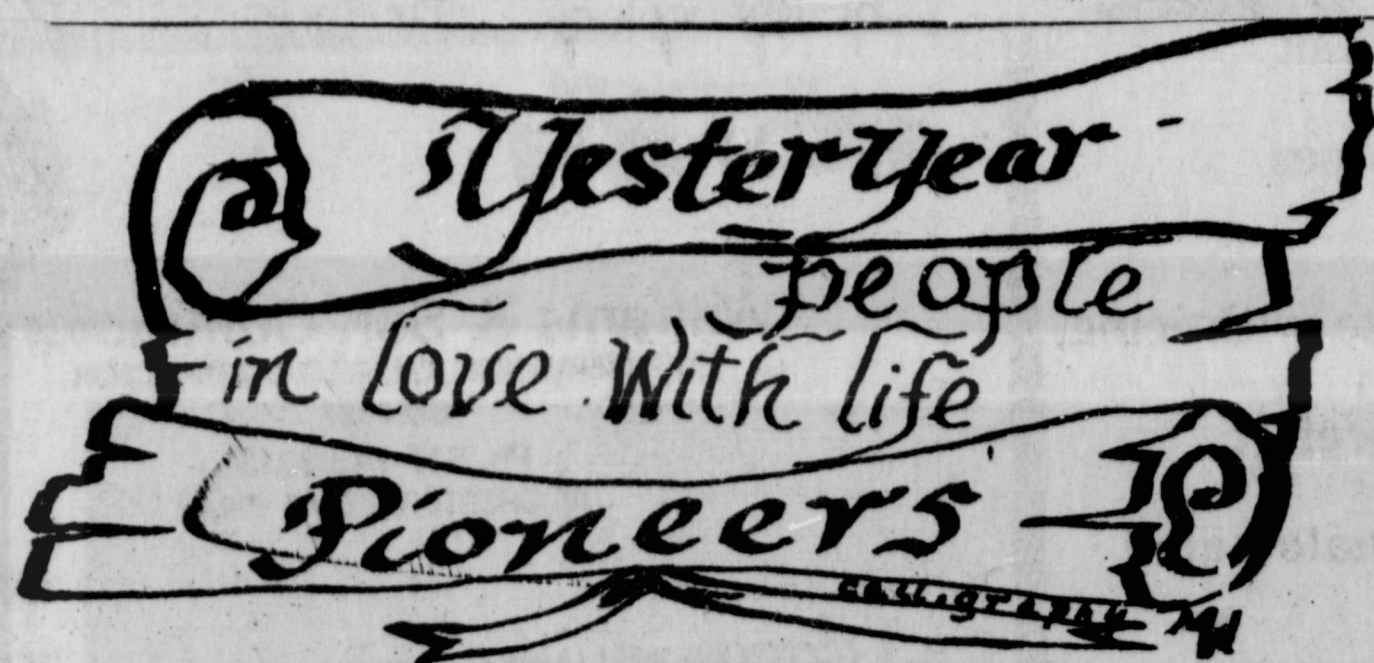 YesterYear -
people
in love With life
Pioneers
calligraphy MH